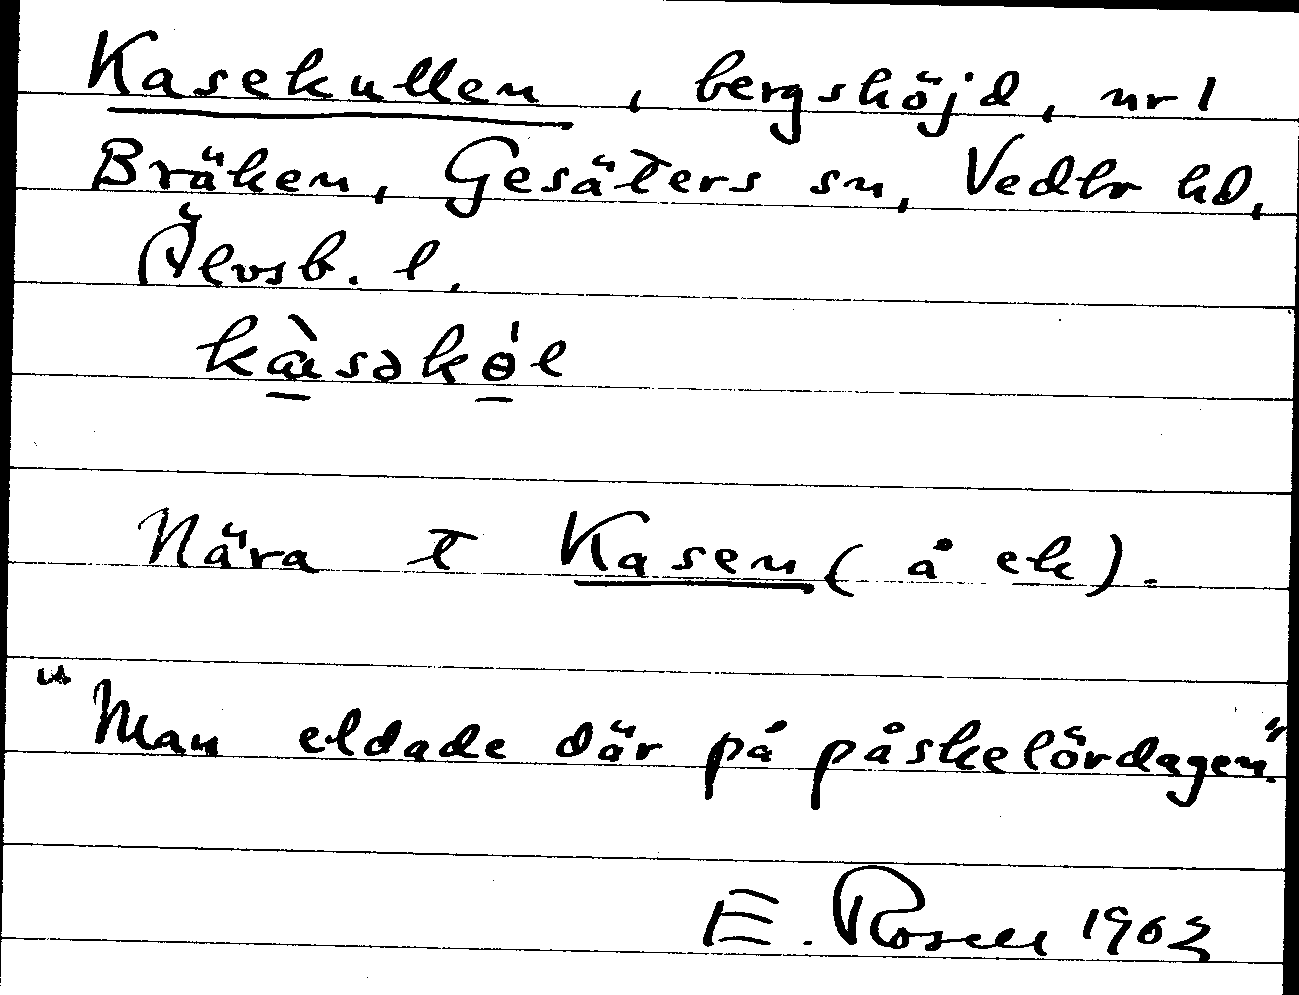 Kasekullen, bergshöjd, nr 1
Bräken, Gesäters sn, Vedbo hd,
Älvsb. l.
kàsəkɵ́l
Nära t Kasen (å ek).
"Man eldade där på påskelördagen".
E. Rosell 1963